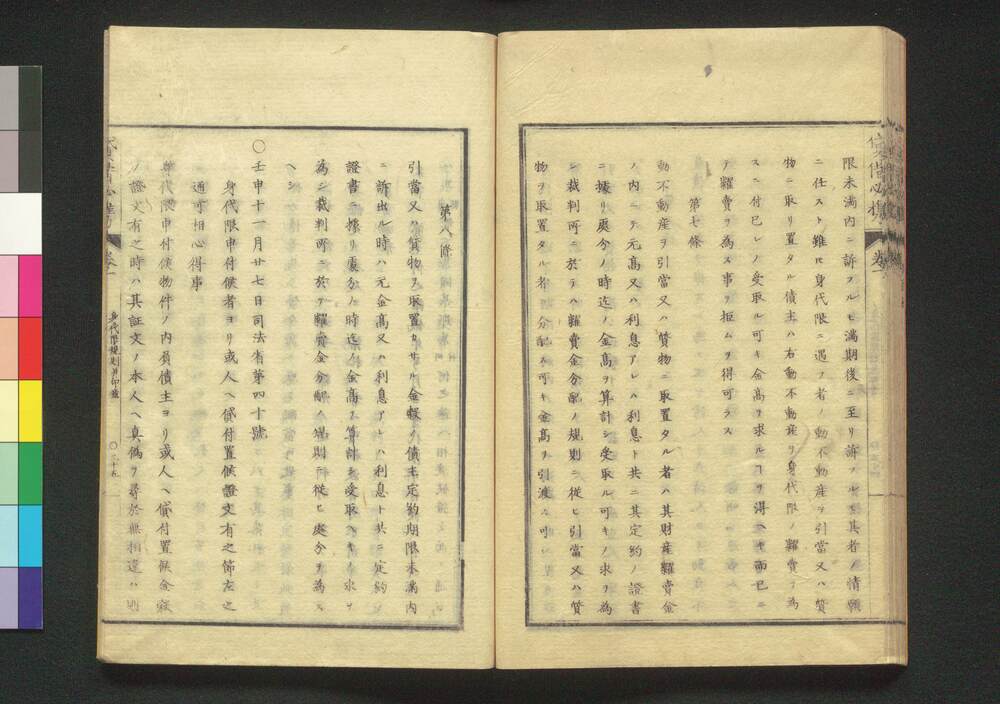 限未満内ニ訴フルモ満期後ニ至リ訴フルモ其者ノ情願
ニ任スト雖モ身代限ニ遇フ者ノ動不動産ヲ引當又ハ質
物ニ取リ置タル債主ハ右動不動産ヲ身代限ノ糶賣ヲ為
スニ付已レノ受取ル可キ金高ヲ求ルヿヲ得ヘキ而已ニ
テ糶賣ヲ為ス事ヲ拒ムヲ得可ラス
第七條
動不動産ヲ引當又ハ質物ニ取置タル者ハ其財産糶賣金
ノ内ニテ元髙又ハ利息アレハ利息ト共ニ其定約ノ證書
ニ據リ處分ノ時迄ノ金髙ヲ算計シ受取ル可キノ求ヲ為
シ裁判所ニ於テハ糶賣金分配ノ規則ニ從ヒ引當又ハ質
物ヲ取置タル者ヘ分配ス可キ金高ヲ引渡ス可シ
第八條
引當又ハ質物ヲ取置カサル金穀ノ債主定約期限未満内
ニ訴出ル時ハ元金高又ハ利息アレハ利息ト共ニ定約
證書ニ據リ處分ノ時迄ノ金高ヲ算計シ受取ヘキノ求ヲ
為シ裁判所ニ於テ糶賣金分配ノ規則ニ從ヒ處分ヲ為ス
ヘシ
〇壬申十一月廿七日司法省第四十號
身代限申付候者ヨリ或人ヘ貸付置候證文有之節左之
通可相心得事
身代限申付候物件ノ内負債主ヨリ或人ヘ貸付置候金穀
ノ證文有之時ハ其証文ノ本人ヘ真僞ヲ尋於無相違ハ則
卷一
身代限規則并印鑑
〇三十五